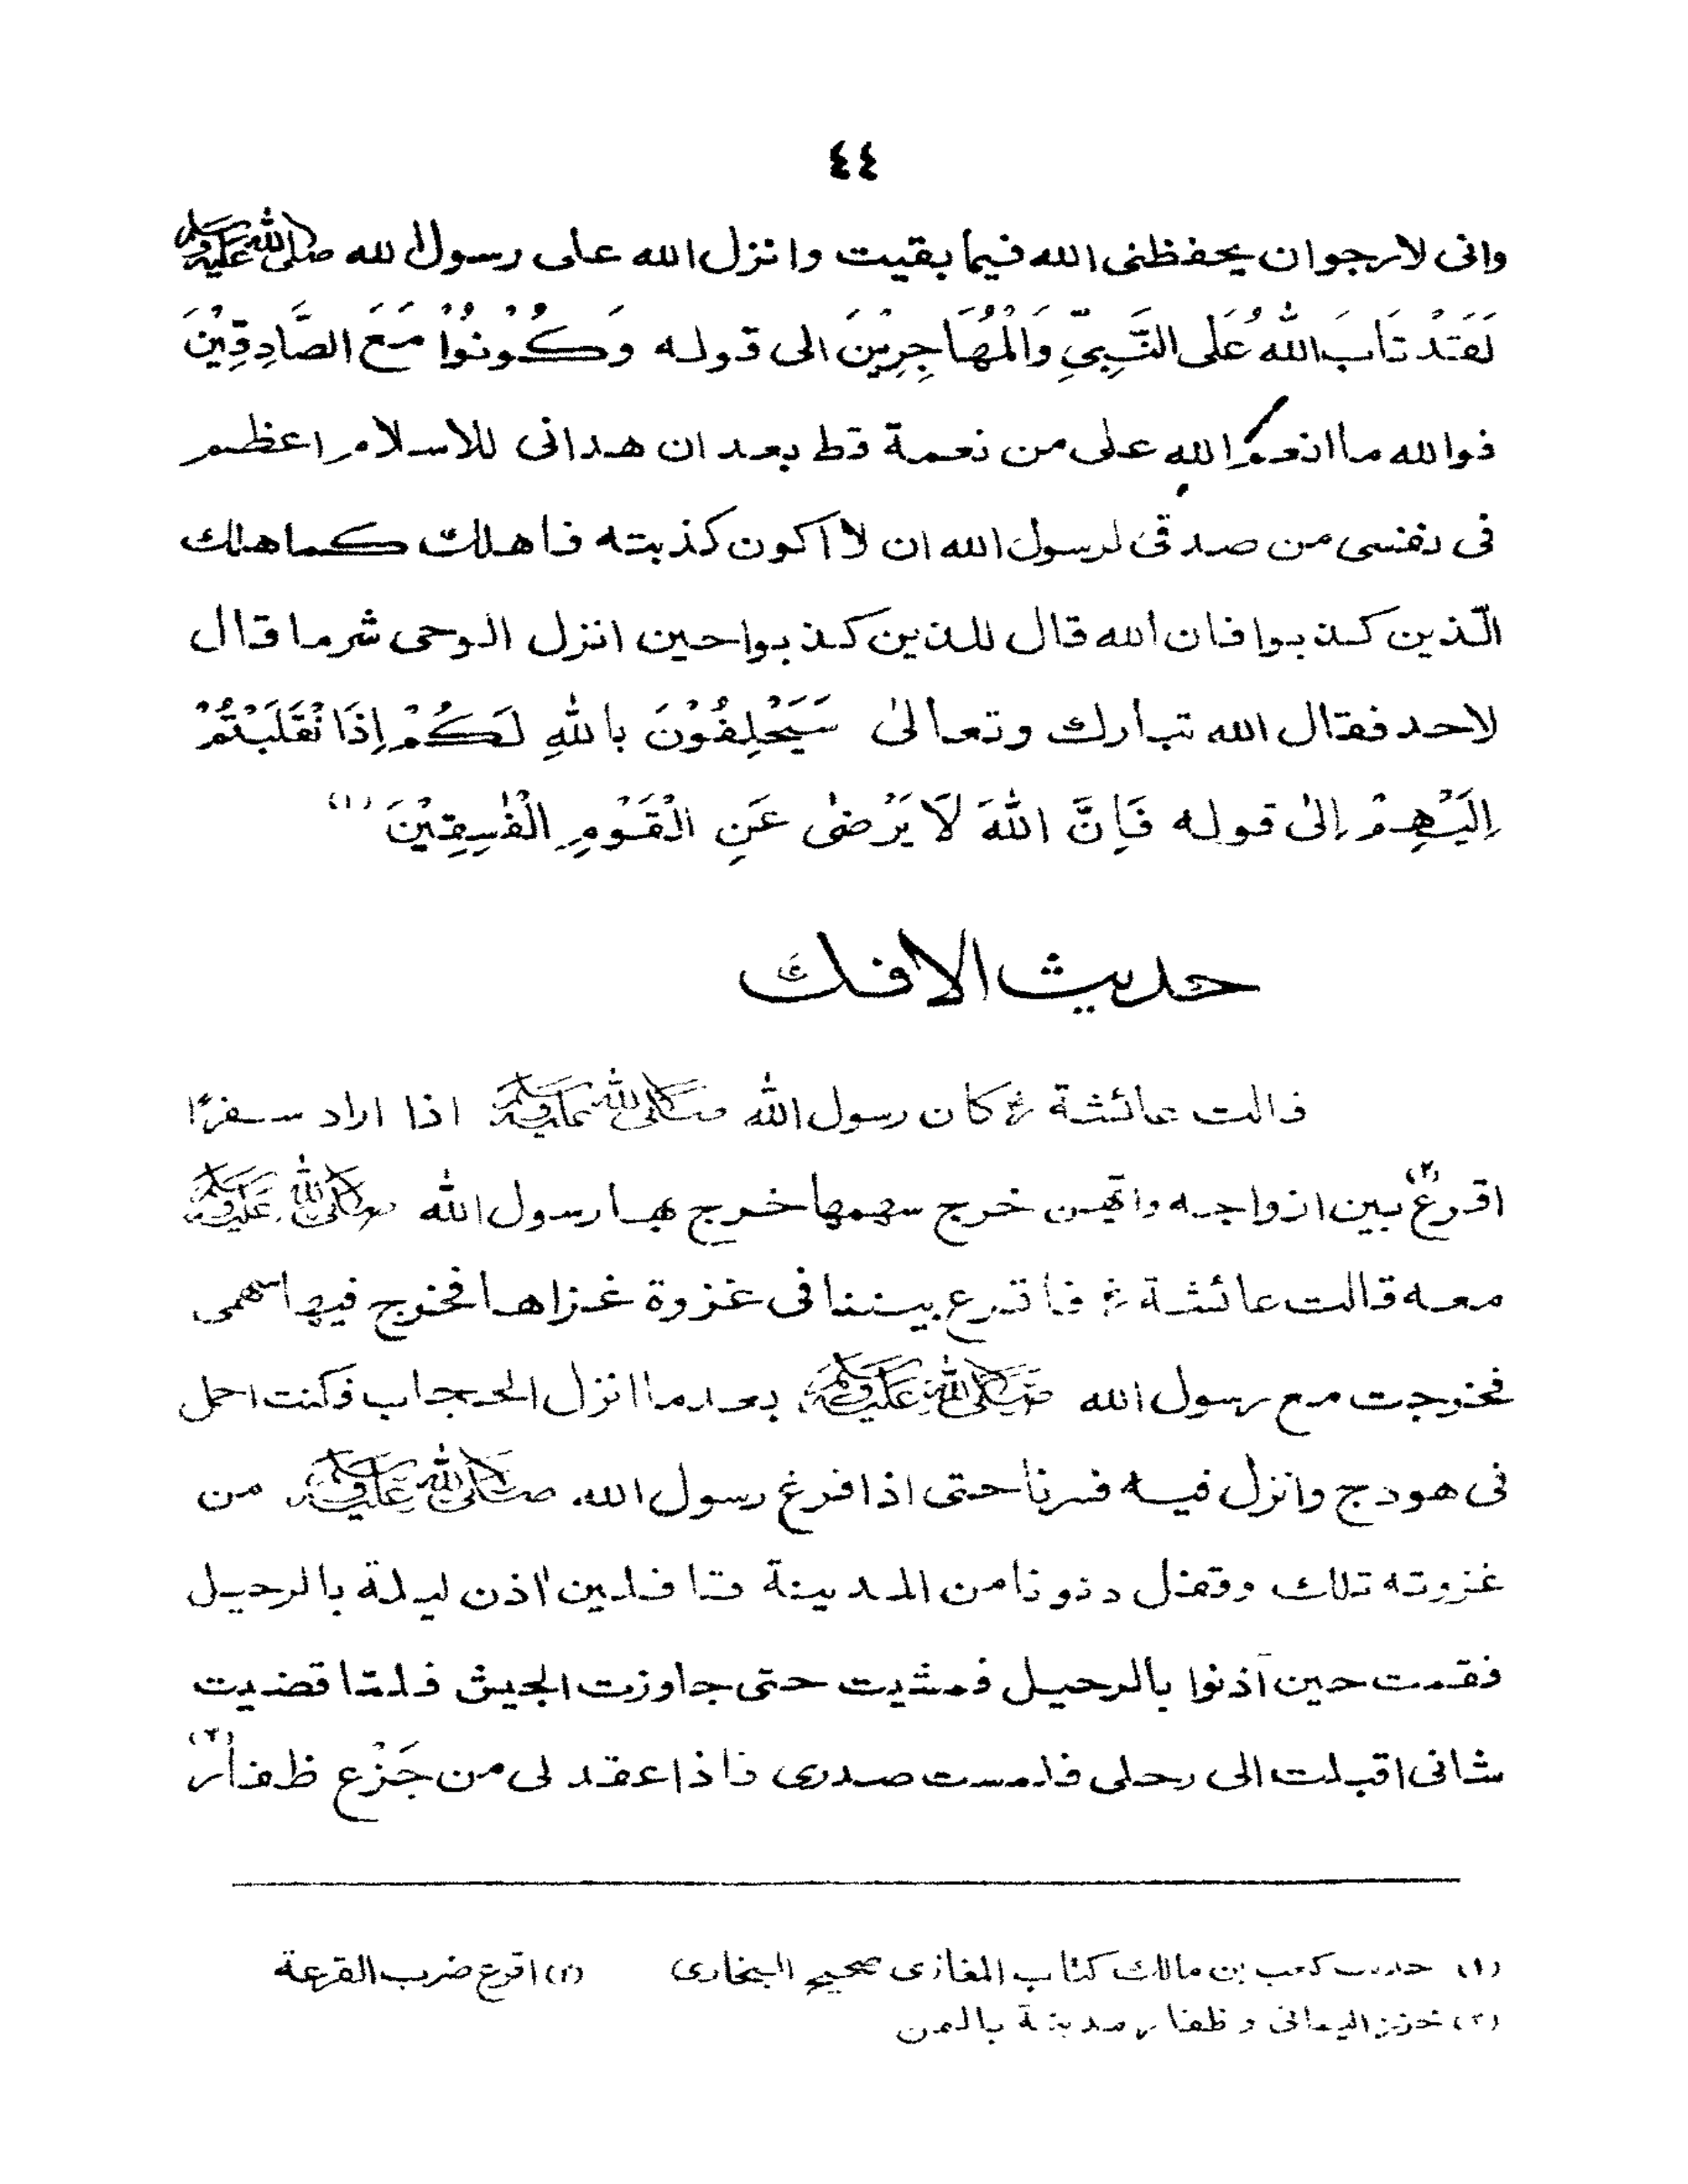 ٤٤
وانى لارجوان يحفظنى الله فيما بقيت وانزل الله على رسول الله صلى الله عليه وسلم
لَقَدْ تَابَ اللهُ عَلَى النَّبِيِّ وَالْمُهَاجِرِيْنَ الى قوله وَكُوْنُوْا مَعَ الصَّادِقِيْنَ
فوالله ما انعم الله على من نعمة قط بعد ان هدانى للاسلام اعظم
فى نفسى من صدقى لرسول الله ان لا اكون كذبته فاهلك كما هلك
الّذين كذبوا فان الله قال للذين كذبوا حين انزل الوحى شر ما قال
لاحد فقال الله تبارك وتعالىٰ سَيَحْلِفُوْنَ بِاللهِ لَكُمْ اِذَا نْقَلَبْتُمْ
اِلَيْهِمْ اِلىٰ قوله فَاِنَّ اللهَ لَا يَرْضىٰ عَنِ الْقَوْمِ الْفٰسِقِيْنَ (١)
حديث الافك
قالت عائشة رض كان رسول الله صلى الله عليه وسلم اذا اراد سفرًا
اقرع (٢) بين ازواجه وايّهن خرج سهمها خرج بها رسول الله صلى الله عليه وسلم
معه قالت عائشة رض فاقرع بيننا فى غزوة غزاها فخرج فيها سهمى
فخرجت مع رسول الله صلى الله عليه وسلم بعد ما انزل الحجاب فكنت احمل
فى هودج وانزل فيه فسرنا حتى اذا فرغ رسول الله صلى الله عليه وسلم من
غزوته تلك وقفل دنونا من المدينة قافلين اذن ليلة بالرحيل
فقمت حين آذنوا بالرحيل فمشيت حتى جاوزت الجيش فلمّا قضيت
شانى اقبلت الى رحلى فلمست صدرى فاذا عقد لى من جَزْع ظفار (٣)
(١) حديث كعب بن مالك كتاب المغازى صحيح البخارى (٢) اقرع ضرب القرعة
(٣) خرز اليمانى و ظفار مدينة باليمن